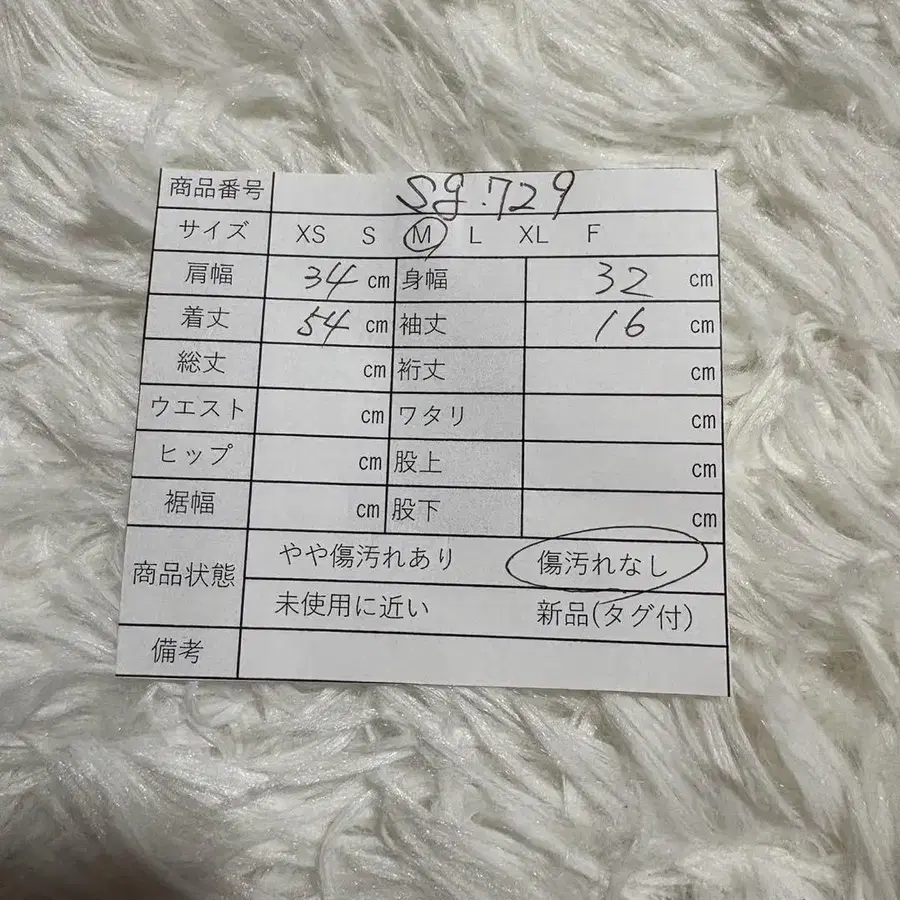 商品番号 sg.729
サイズ XS S M L XL F
肩幅 34 cm 身幅 32 cm
着丈 54 cm 袖丈 16 cm
総丈 cm 裄丈 cm
ウエスト cm ワタリ cm
ヒップ cm 股上 cm
裾幅 cm 股下 cm
商品状態 やや傷汚れあり 傷汚れなし
未使用に近い 新品(タグ付)
備考